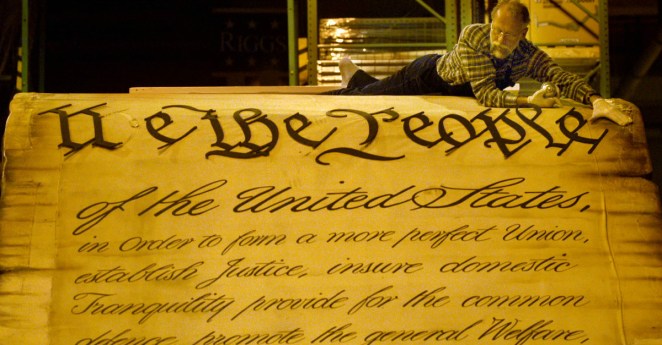 RIGGS
We the People
of the United States,
in Order to form a more perfect Union,
establish Justice, insure domestic
Tranquility provide for the common
defence, promote the general Welfare,